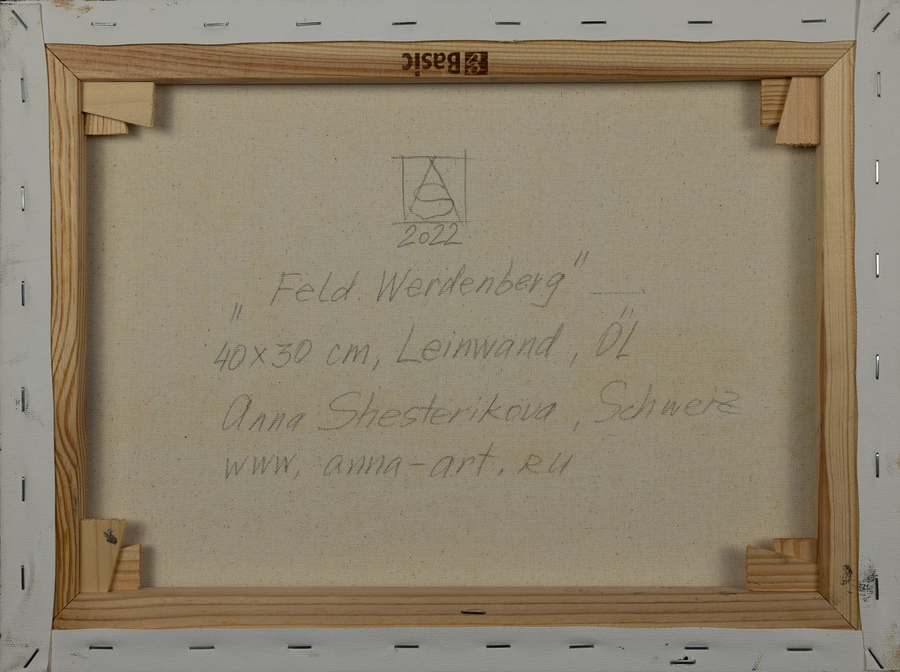 Basic
2022
„Feld. Werdenberg"
40x30 cm, Leinwand, ÖL
Anna Shesterikova, Schweiz
www.anna-art.ru